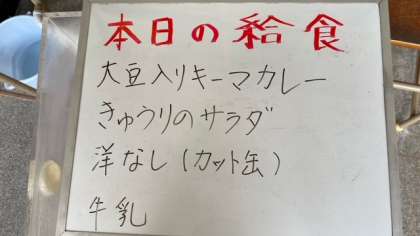 本日の給食
大豆入りキーマカレー
きゅうりのサラダ
洋なし(カット缶)
牛乳